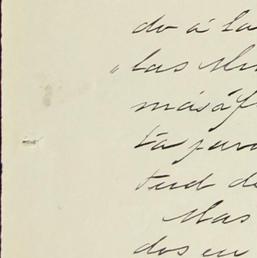 do á la
las Mu
más á f
ta para
tud de
Mas
dos en